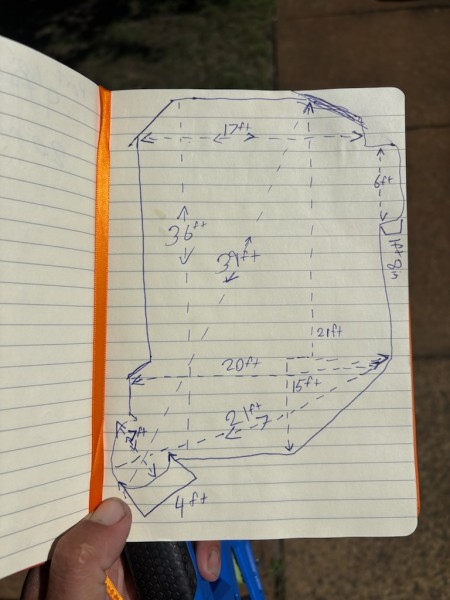 17ft
6ft
36ft
39ft
21ft
20ft
15ft
21ft
7ft
4ft